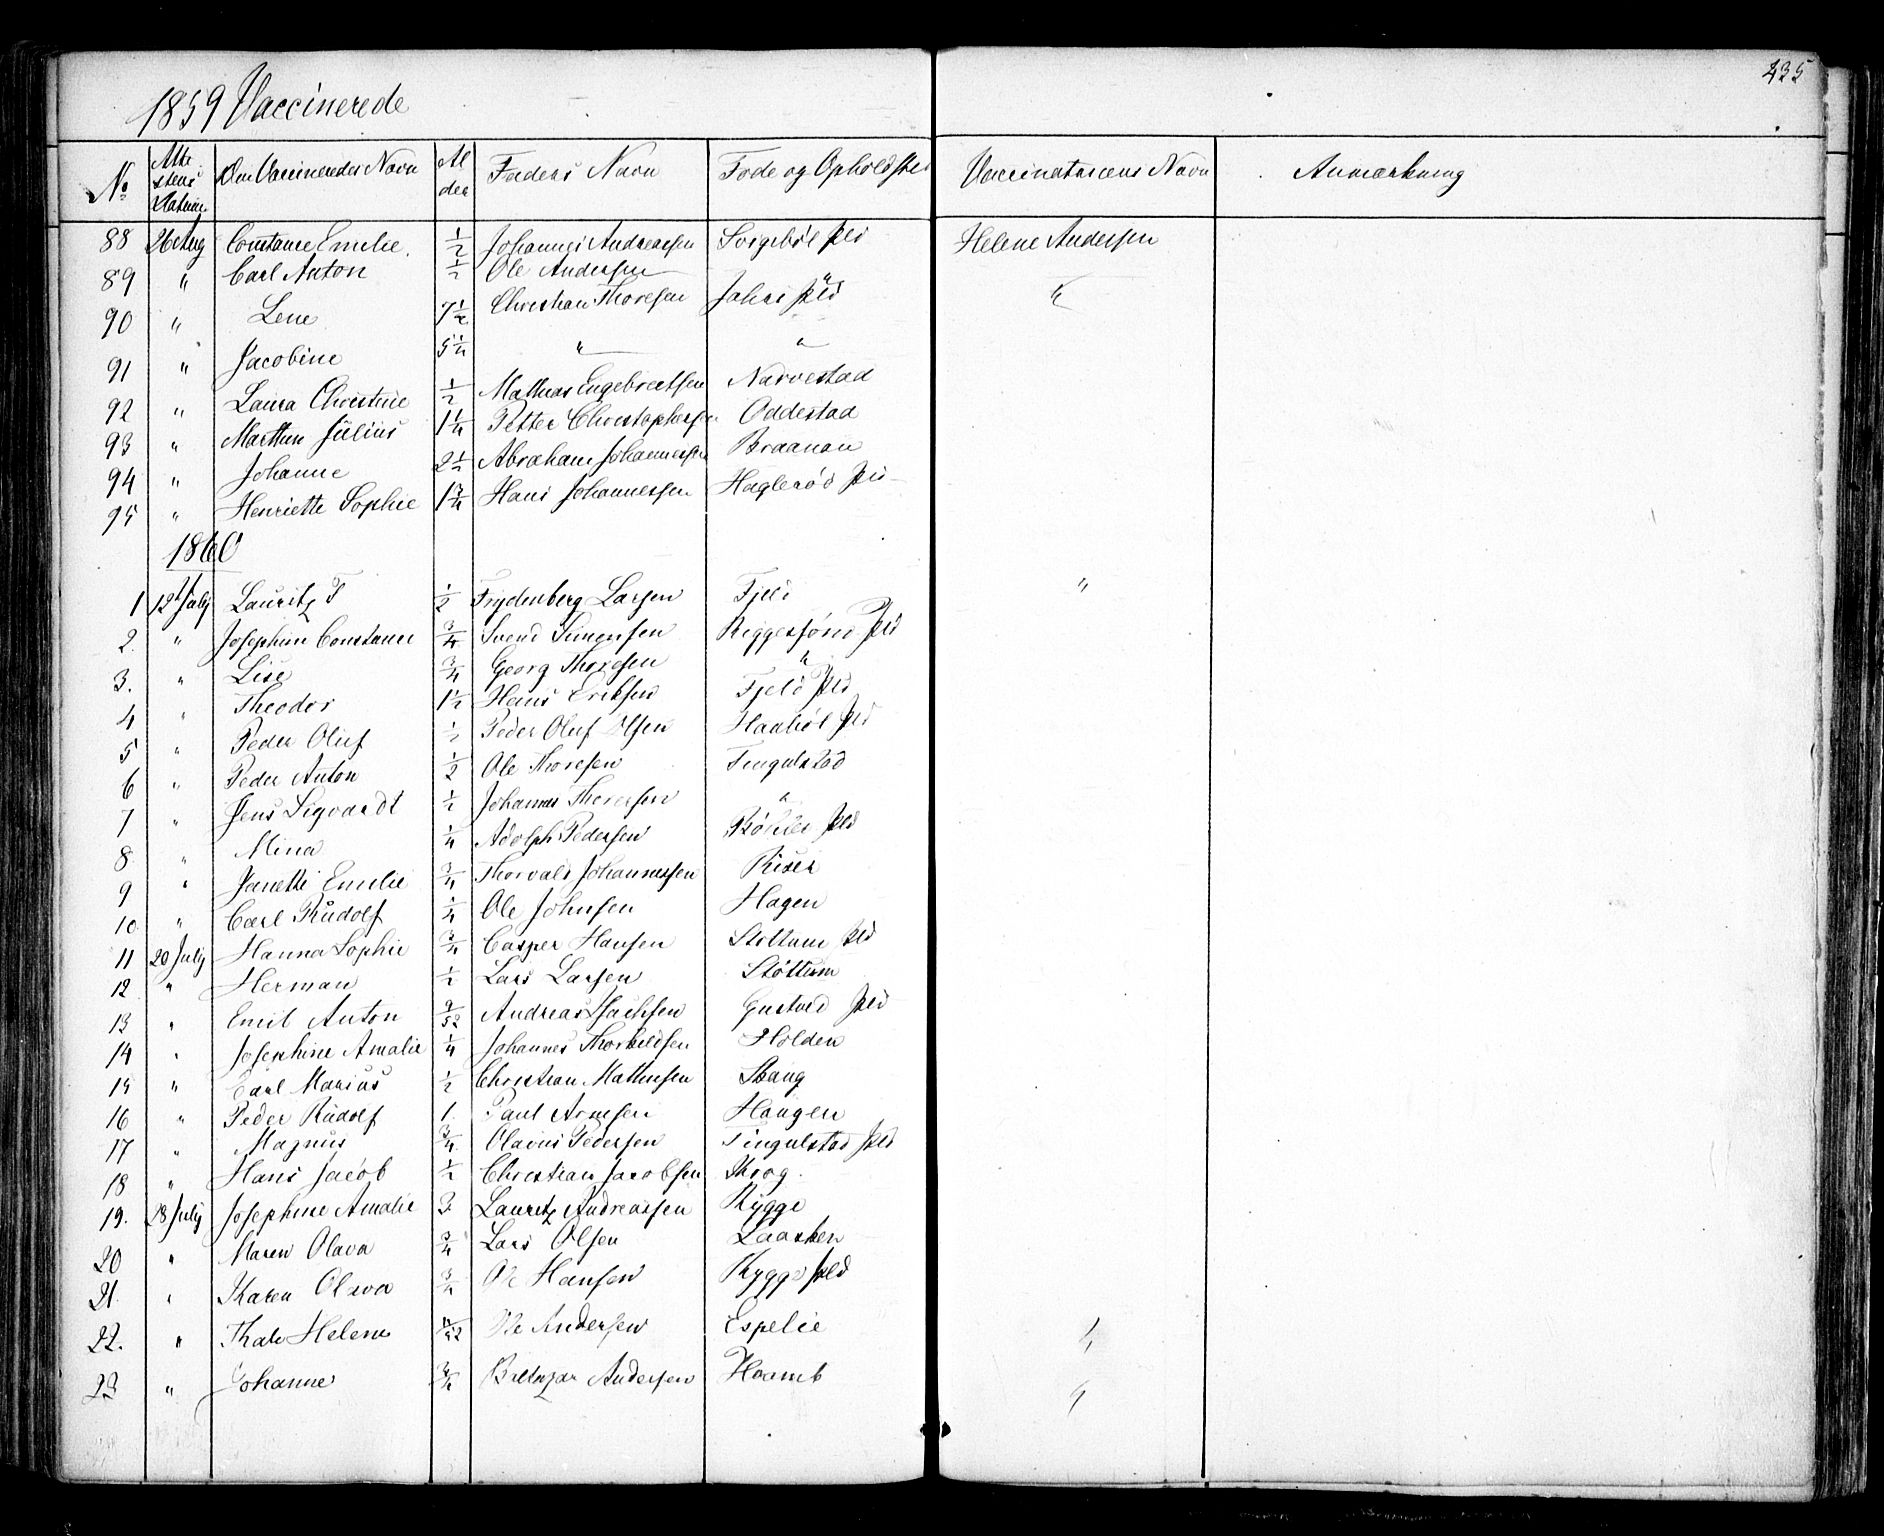 235
1859 Vaccinerede
No Attestens Datum Den Vaccineredes Navn Alder Faders Navn Føde og Opholdsted Vaccinatricens Navn Anmærkning
88 26 Aug Constance Emilie 1/2 Johannes Andreassen pld Helene Andersen
89 " Carl Anton 1/2 Ole Andersen "
90 " Lene 7 1/2 Christian Thoresen pld "
91 " Jacobine 5 1/4 " "
92 " Laura Christine 1/2 Mathias Engebretsen Narvestad
93 " Marthin Julius 1 1/4 Petter Christophersen Oddestad
94 " Johanne 2 1/2 Abraham Johannessen Braanan
95 " Henriette Sophie 1 3/4 Hans Johannessen Haglerød pld
1860
1 12 July Lauritz T 1/2 Frydenberg Larsen Fjeld "
2. " Josephine Constance 3/4 Svend Simensen pld
3. " Lise 3/4 Georg Thoresen "
4 " Theodor 1 1/2 Hans Eriksen Fjeld pld
5 " Peder Oluf 1/2 Peder Oluf Olsen Haabøl pld
6 " Peder Anton 1/2 Ole Thoresen Tingulstad
7 " Jens Sigvardt 1/2 Johannes Thoresen "
8 " Mina 1/4 Adolph Pedersen pld
9 " Janette Emilie 3/4 Thorvald Johannessen Riser
10 " Carl Rudolf 1/4 Ole Johnsen Hagen
11 20 July Hanna Sophie 3/4 Casper Hansen Støttum pld
12 " Herman 1/2 Lars Larsen Støttum
13 " Emil Anton 9/52 Andreas Isachsen pld
14 " Josephine Amalie 1/4 Johannes Thorkildsen Holden
15 " Carl Marius 1/2 Christian Mathisen
16 " Peder Rudolf 1 Paul Arnesen Haugen
17 " Magnus 3/4 Olavus Pedersen Tingulstad pld
18 " Hans Jacob 1/2 Christian Jacobsen Krog
19. 28 July Josephine Amalie 3 Lauritz Andreassen Rygge
20 " Maren Olava 3/4 Lars Olsen Laarken
21. " Karen Olava 3/4 Ole Hansen Rygge pld
22. " Helene Ole Andersen Espelie "
23 " Johanne 3/4 Baltazar Andersen "